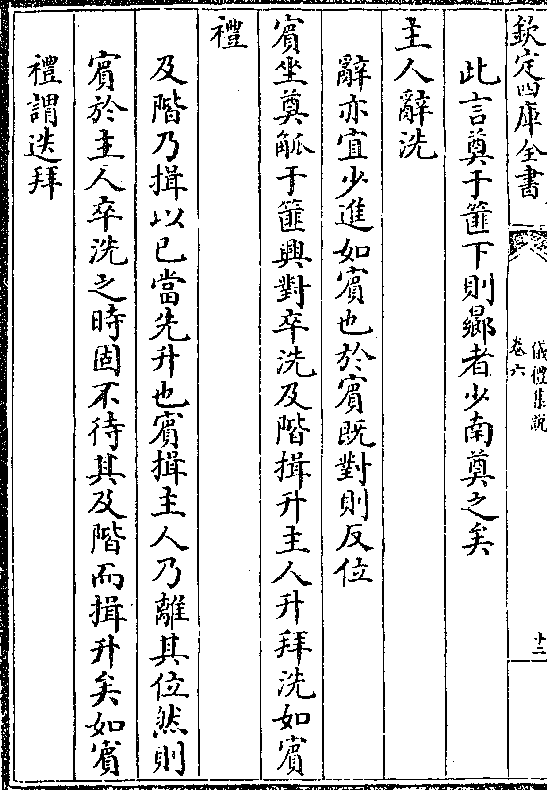 欽定四庫全書
儀禮集說
卷六
十二
此言奠于篚下則鄉者少南奠之矣
主人辭洗
辭亦宜少進如賓也於賓既對則反位
賓坐奠觚于篚興對卒洗及階揖升主人升拜洗如賓
禮
及階乃揖以已當先升也賓揖主人乃離其位然則
賓於主人卒洗之時固不待其及階而揖升矣如賓
禮謂迭拜